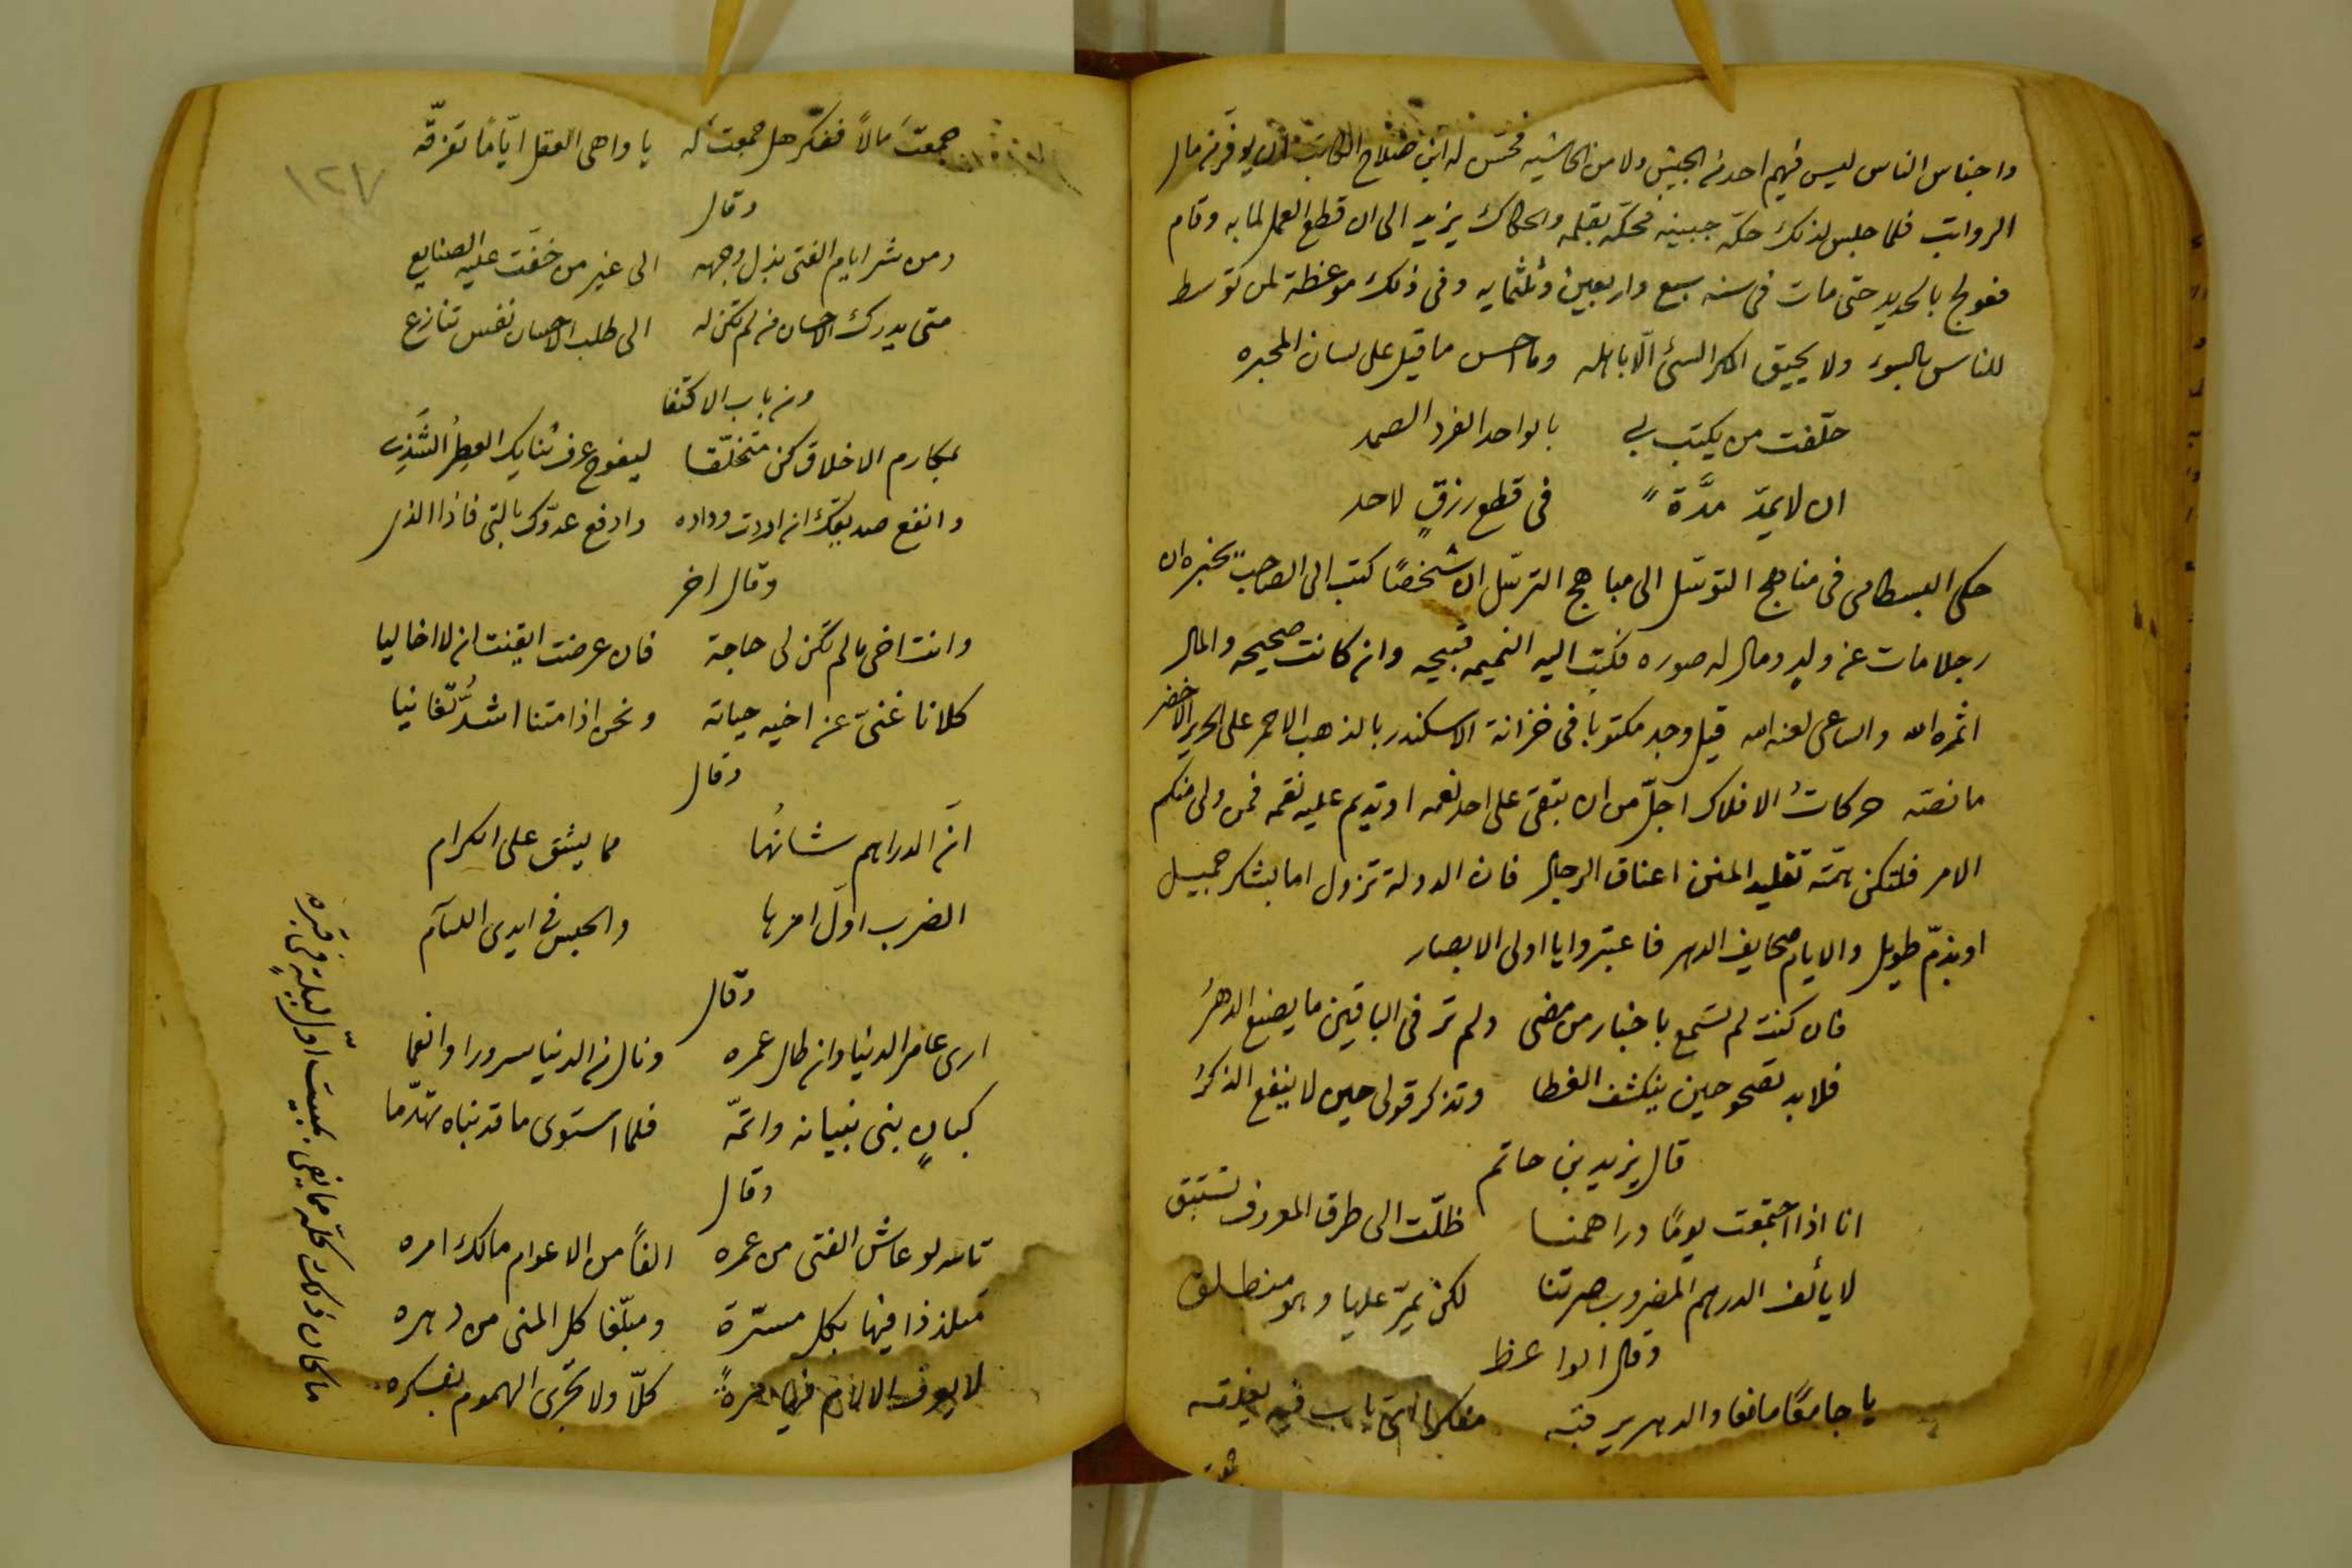 واجناس الناس ليس فيهم احد من الجيش ولا من الحاشيه فحسّن له ابن صلاح الكاتب ان يوفر من مال
الرواتب فلما جلس لذلك حكّه جبينه فحكّه بقلمه والحكاك يزيد الى ان قطع العمل لما به وقام
فعولج بالحديد حتى مات في سنه سبع واربعين وثلثمايه وفي ذلك موعظة لمن توسط
للناس بالسوء ولا يحيق المكر السئ الّا باهله وما احسن ما قيل على لسان المحبره
حلّفت من يكتب بي بالواحد الفرد الصمد
ان لا يمدّ مدّة في قطع رزقٍ لاحد
حكى البسطامى فى مناهج التوسّل الى مباهج الترسّل ان شخصًا كتب الى الصاحب يخبره ان
رجلا مات عن ولد ومال له صوره فكتب اليه النميمه قبيحه وان كانت صحيحه والمال
اثمره الله والساعى لعنه الله قيل وجد مكتوبا فى خزانة الاسكندر بالذهب الاحمر على الحرير الاخضر
ما نصّه حركاتُ الافلاك اجلّ من ان تبقى على احد نعمه او تديم عليه نقمه فمن ولى منكم
الامر فلتكن همّته تقليد المنن اعناق الرجال فان الدولة تزول اما بشكر جميل
او بذمّ طويل والايام صحايف الدهر فاعتبروا يا اولى الابصار
فان كنت لم تسمع باخبار من مضى ولم تر فى الباقين ما يصنع الدهرُ
فلابد تصحو حين ينكشف الغطا وتذكر قولى حين لا ينفع الذكرُ
قال يزيد بن حاتم
انا اذا اجتمعت يومًا دراهمنا ظلّت الى طرق المعروف تستبق
لا يألف الدرهم المضروب صرتنا لكن يمرّ عليها وهو منطلق
وقال الواعظ
يا جامعًا مانعا والدهر يرقبه مفكرا اىّ باب فيه يغلقه
جمعت
جمعتَ مالاً ففكّر هل جمعت له يا واهى العقل ايّامًا تفرّقه
وقال
ومن شر ايام الفتى بذل وجهه الى غير من خفّت عليه الصنايع
متى يدرك الاحسان من لم تكن له الى طلب الاحسان نفس تنازع
ومن باب الاكتفا
بمكارم الاخلاق كن متخلّقا ليفوح عرف ثنايك العطِرُ الشَّذِى
وانفع صديقك ان اردت وداده وادفع عدوّك بالتى فاذا الذى
وقال اخر
وانت اخى ما لم تكن لى حاجة فان عرضت ايقنت ان لا اخا ليا
كلانا غنىّ عن اخيه حياته ونحن اذا متنا اشدُّ تّغانيا
وقال
انّ الدراهم شانُها مما يشق على الكرام
الضرب اوّل امرها والحبس فى ايدى اللئآم
وقال
ارى عامر الدنيا وان طال عمره ونال من الدنيا سرورا وانعما
كبانٍ بنى بنيانه واتمّه فلما استوى ما قد بناه تهدّما
وقال
تالله لو عاش الفتى من عمره الفًا من الاعوام مالك امره
متلذذا فيها بكل مسرّة ومبلّغا كل المنى من دهره
لا يعرف الالام فيها مرةً كلّا ولا تجرى الهموم بفكره
ما كان ذلك كلّه مما يفى بمبيت اوّل ليلةٍ فى قبره
١٢٧